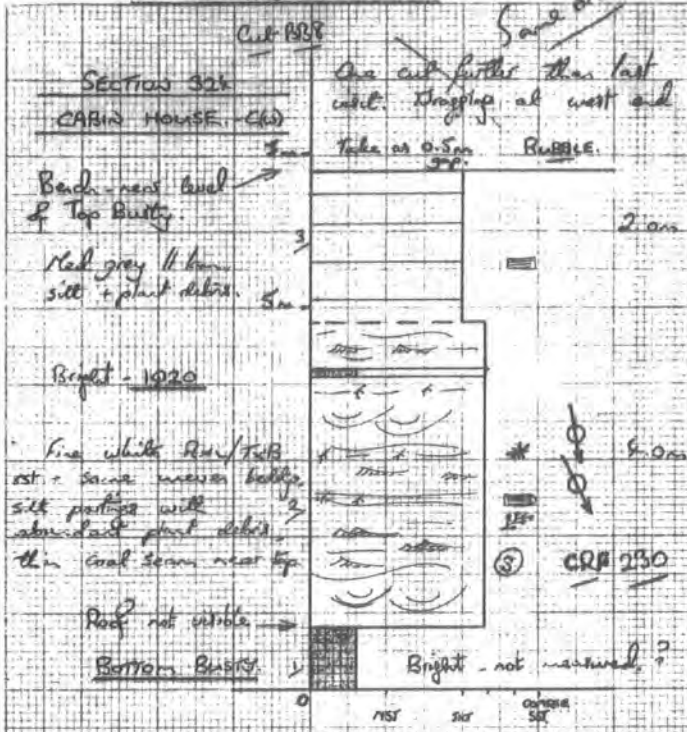 Cut BB8
Same
SECTION 324
CABIN HOUSE - C(W)
One cut further than last
visit. Dragging at west end
Take as 0.5m gap. RUBBLE.
7m
Bench - near level
of Top Busty.
3
2.0m
Med grey // lam
silt + plant debris.
5m
Bright - 1020
Fine white
sst + some uneven beddg.
silt partings with
abundant plant debris.
thin coal seam near top
2
4.0m
3
CRF 230
Roof not visible
BOTTOM BUSTY.
1
Bright - not measured. ?
0
MST
SLT
COARSE
SST